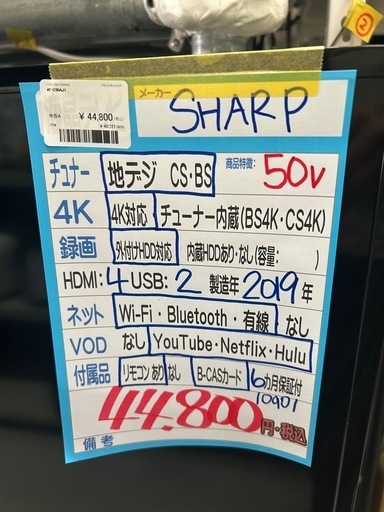 中古A ¥ 44,800(税込)
メーカー SHARP
チュナー 地デジ CS・BS 商品特徴: 50V
4K 4K対応 チューナー内蔵(BS4K・CS4K)
録画 外付けHDD対応 内蔵HDDあり・なし(容量: )
HDMI: 4 USB: 2 製造年 2019年
ネット Wi-Fi・Bluetooth・有線 なし
VOD なし YouTube・Netflix・Hulu
付属品 リモコン あり なし B-CASカード 6カ月保証付
10901
44,800円・税込
備考
②